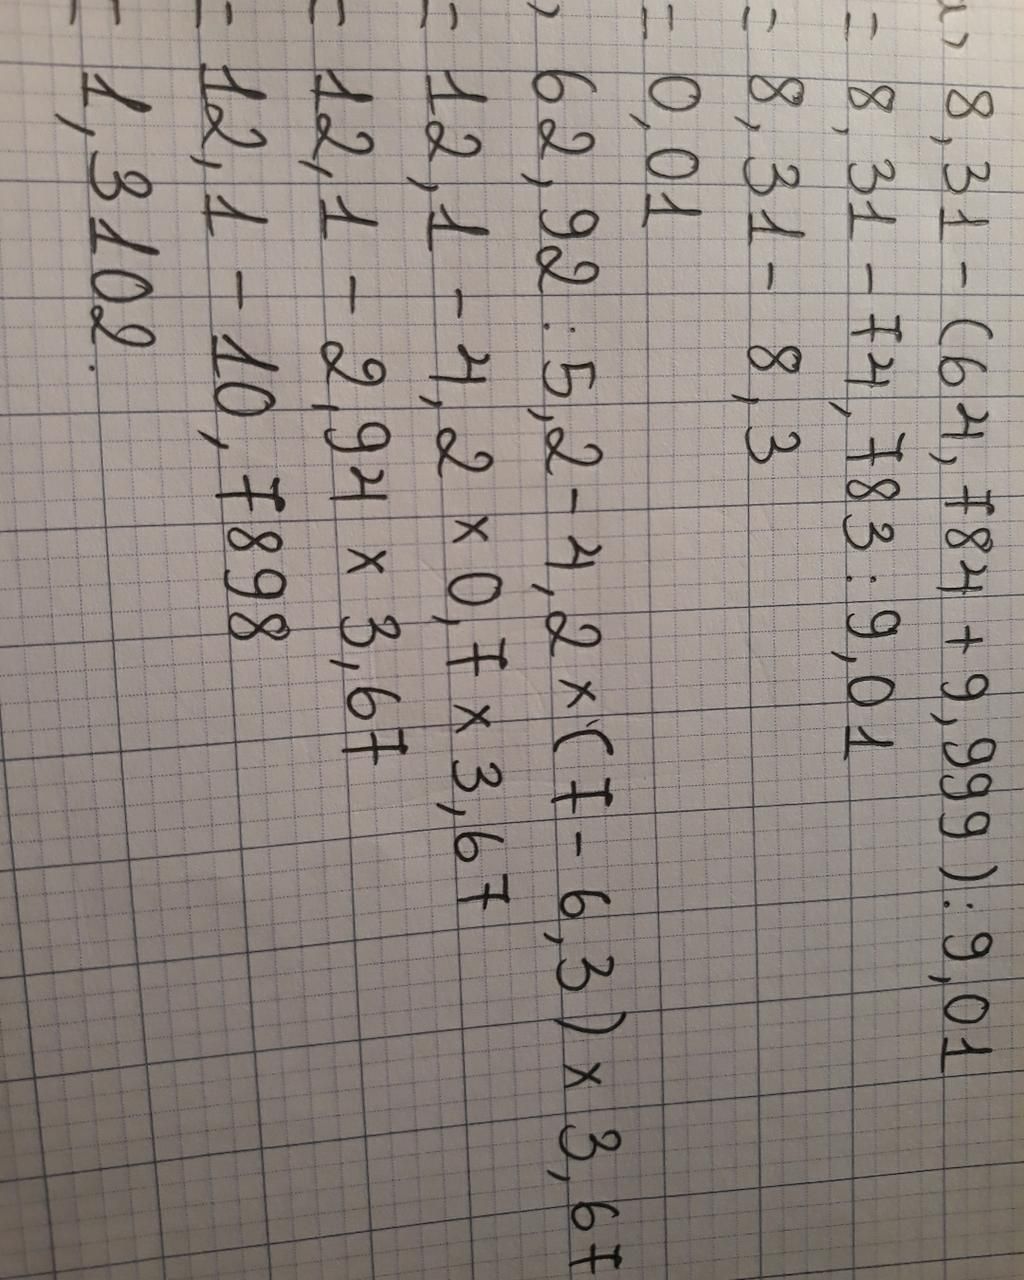 8,31 - (64,784 + 9,999) : 9,01
= 8,31 - 74,783 : 9,01
= 8,31 - 8,3
= 0,01
62,92 : 5,2 - 4,2 x (7 - 6,3) x 3,67
= 12,1 - 4,2 x 0,7 x 3,67
= 12,1 - 2,94 x 3,67
= 12,1 - 10,7898
= 1,3102.